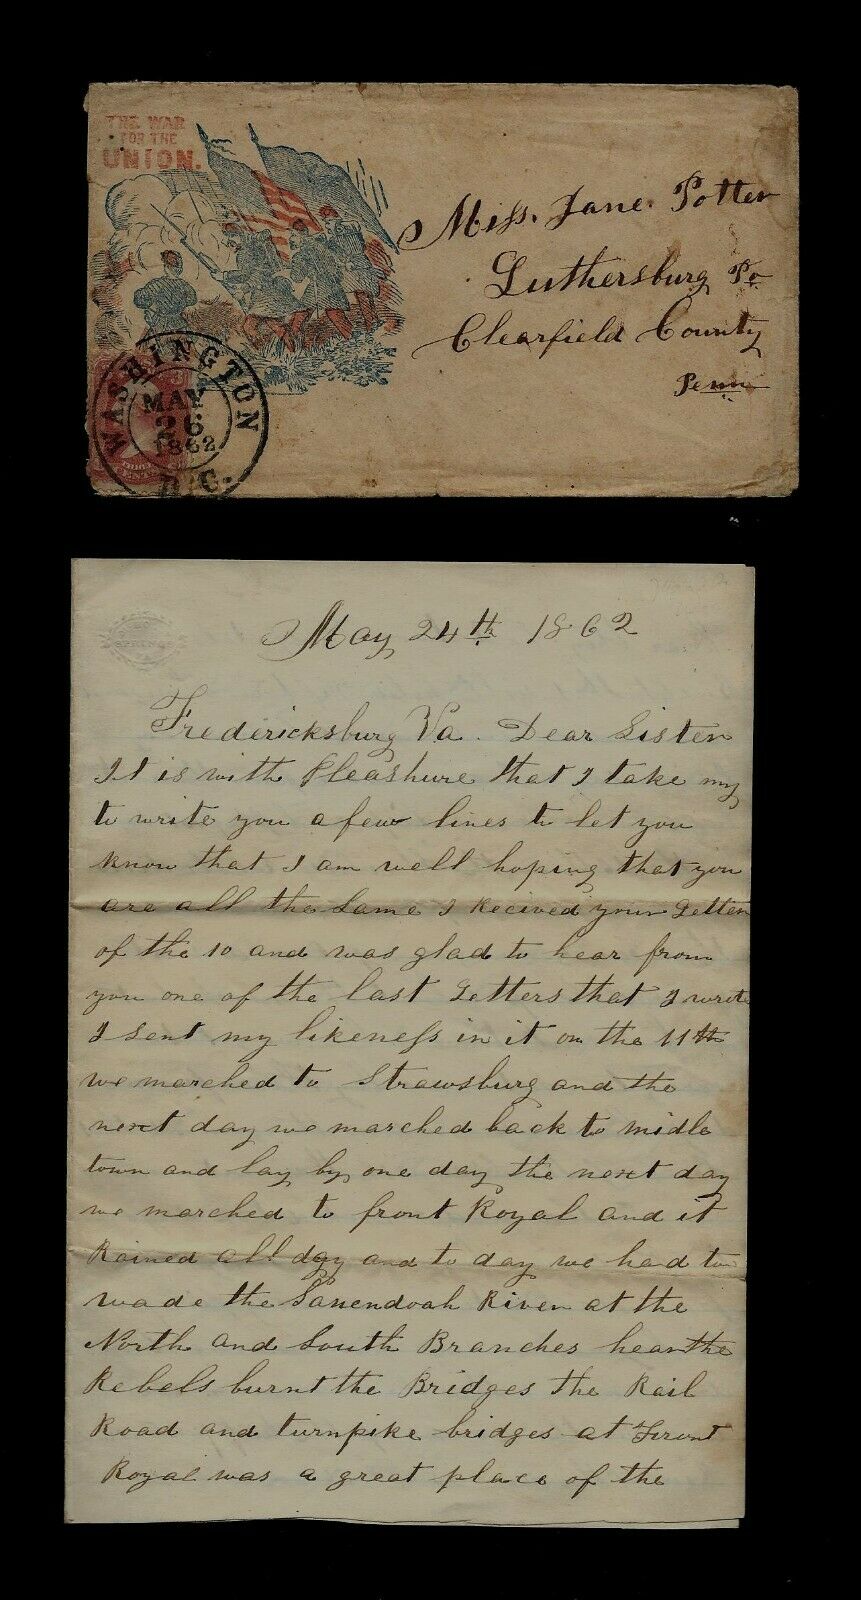 THE WAR
FOR THE
UNION.
Miss. Jane. Potter
Luthersburg Po
Clearfield County
Penn
WASHINGTON
MAY
26
1862
D.C.
May 24th 1862
Fredericksburg Va. Dear Sister
It is with Pleashure that I take my
to write you a few lines to let you
know that I am well hoping that you
are all the Same I Recived your Letter
of the 10 and was glad to hear from
you one of the last Letters that I wrote
I Sent my likeness in it on the 11th
we marched to Strawsburg and the
next day we marched back to midle
town and lay by one day the next day
we marched to front Royal and it
Rained all day and to day we had to
wade the Sanendoah River at the
North and South Branches hear the
Rebels burnt the Bridges the Rail
Road and turnpike bridges at Front
Royal was a great place of the